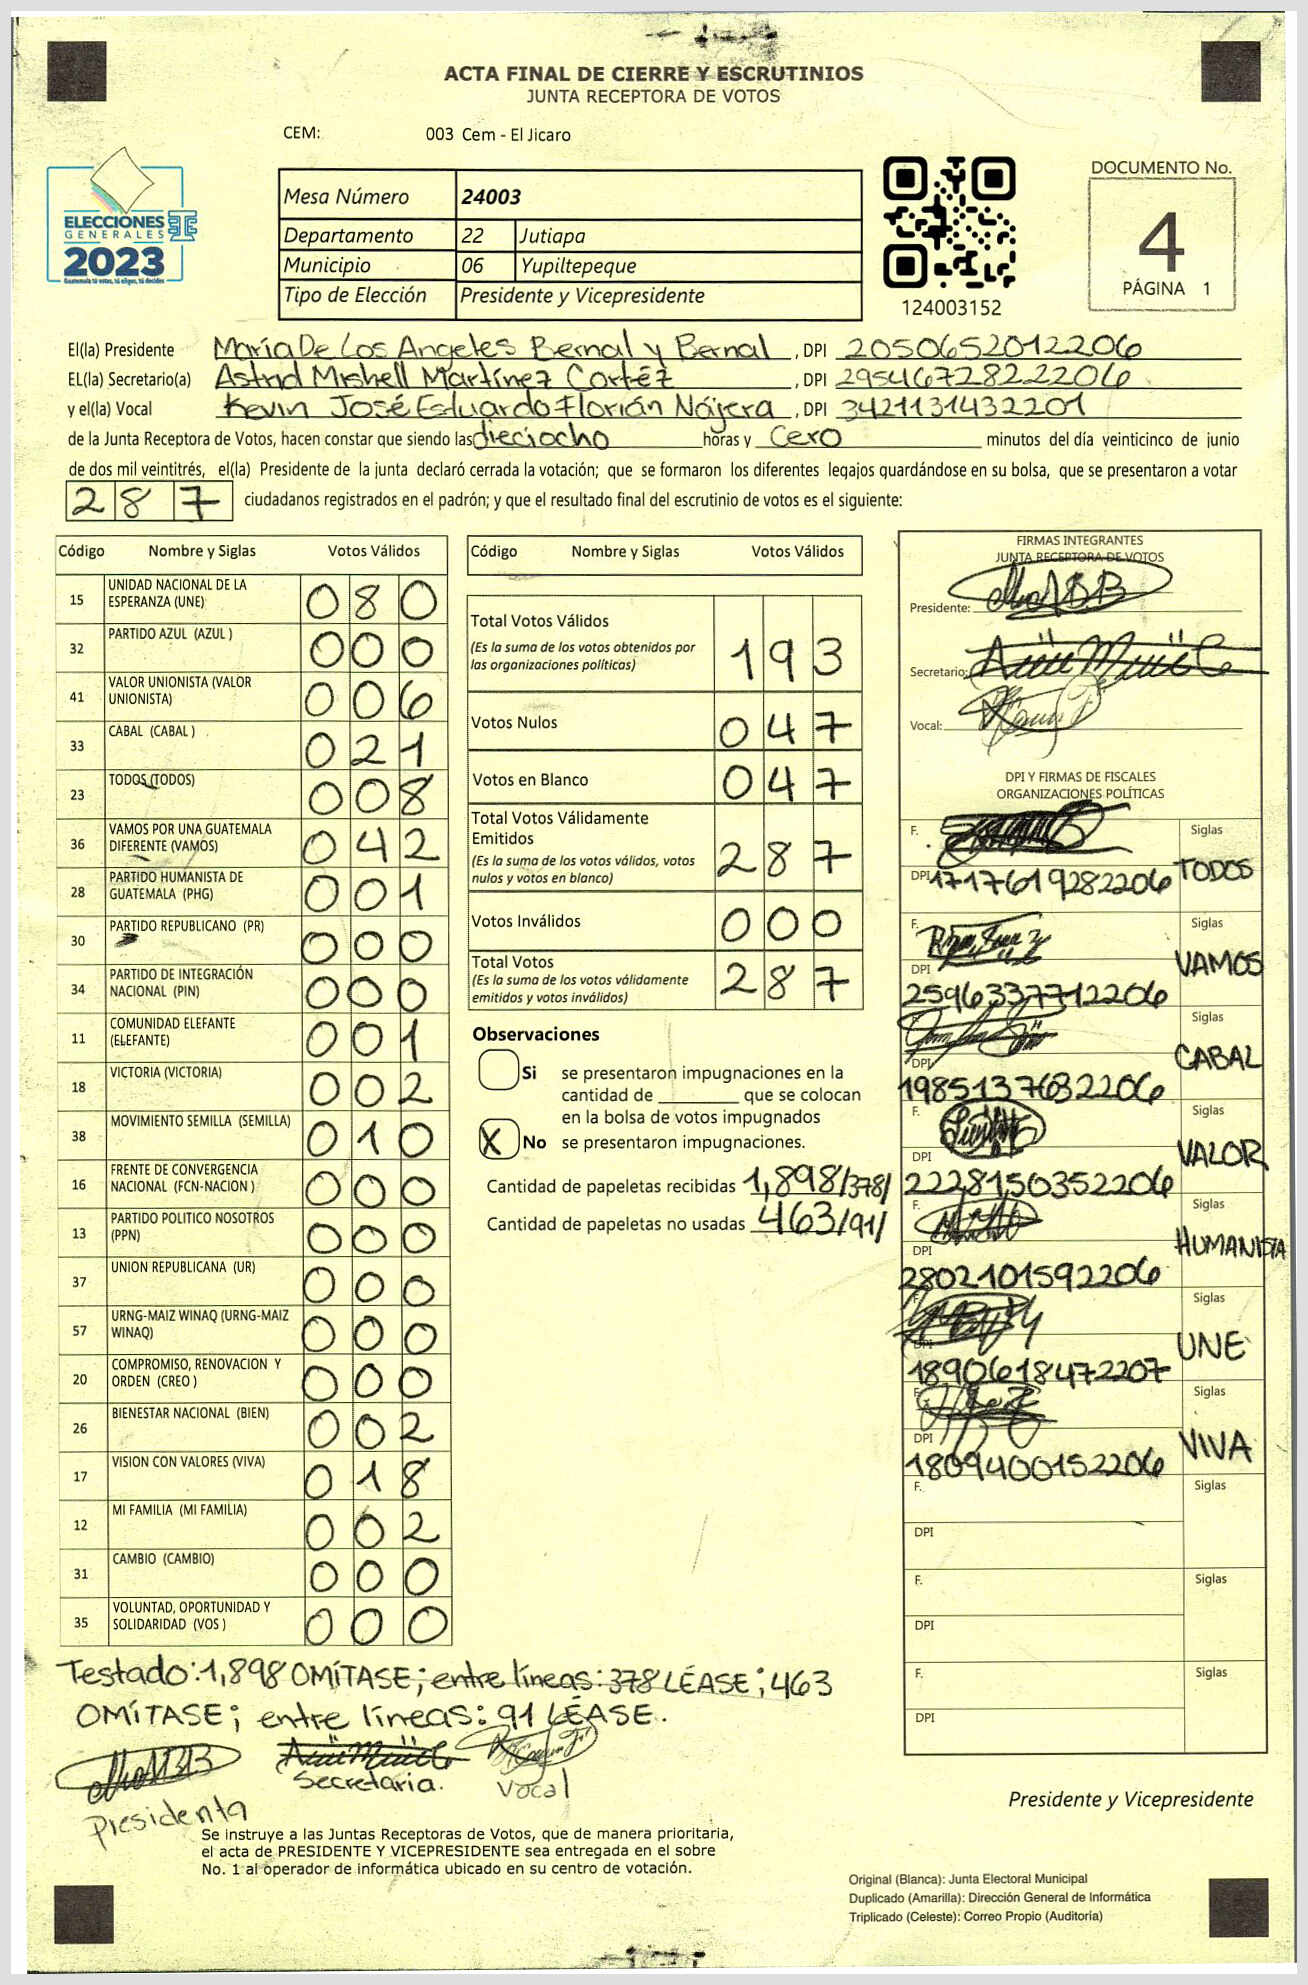 ACTA FINAL DE CIERRE Y ESCRUTINIOS
JUNTA RECEPTORA DE VOTOS
CEM: 003 Cem - El Jicaro
ELECCIONES
GENERALES
2023
Guatemala tú votas, tú eliges, tú decides
Mesa Número 24003
Departamento 22 Jutiapa
Municipio 06 Yupiltepeque
Tipo de Elección Presidente y Vicepresidente
124003152
DOCUMENTO No.
4
PÁGINA 1
El(la) Presidente María De Los Angeles Bernal y Bernal, DPI 2050652012206
EL(la) Secretario(a) Astrid Mishell Martínez Cortéz, DPI 2954672822206
y el(la) Vocal Kevin José Eduardo Florián Nájera, DPI 3421131432201
de la Junta Receptora de Votos, hacen constar que siendo las dieciocho horas y cero minutos del día veinticinco de junio
de dos mil veintitrés, el(la) Presidente de la junta declaró cerrada la votación; que se formaron los diferentes legajos quardándose en su bolsa, que se presentaron a votar
287 ciudadanos registrados en el padrón; y que el resultado final del escrutinio de votos es el siguiente:
Código Nombre y Siglas Votos Válidos
15 UNIDAD NACIONAL DE LA ESPERANZA (UNE) 080
32 PARTIDO AZUL (AZUL ) 000
41 VALOR UNIONISTA (VALOR UNIONISTA) 006
33 CABAL (CABAL ) 021
23 TODOS (TODOS) 008
36 VAMOS POR UNA GUATEMALA DIFERENTE (VAMOS) 042
28 PARTIDO HUMANISTA DE GUATEMALA (PHG) 001
30 PARTIDO REPUBLICANO (PR) 000
34 PARTIDO DE INTEGRACIÓN NACIONAL (PIN) 000
11 COMUNIDAD ELEFANTE (ELEFANTE) 001
18 VICTORIA (VICTORIA) 002
38 MOVIMIENTO SEMILLA (SEMILLA) 010
16 FRENTE DE CONVERGENCIA NACIONAL (FCN-NACION ) 000
13 PARTIDO POLITICO NOSOTROS (PPN) 000
37 UNION REPUBLICANA (UR) 000
57 URNG-MAIZ WINAQ (URNG-MAIZ WINAQ) 000
20 COMPROMISO, RENOVACION Y ORDEN (CREO ) 000
26 BIENESTAR NACIONAL (BIEN) 002
17 VISION CON VALORES (VIVA) 018
12 MI FAMILIA (MI FAMILIA) 002
31 CAMBIO (CAMBIO) 000
35 VOLUNTAD, OPORTUNIDAD Y SOLIDARIDAD (VOS ) 000
Código Nombre y Siglas Votos Válidos
Total Votos Válidos 193
(Es la suma de los votos obtenidos por
las organizaciones políticas)
Votos Nulos 047
Votos en Blanco 047
Total Votos Válidamente
Emitidos 287
(Es la suma de los votos válidos, votos
nulos y votos en blanco)
Votos Inválidos 000
Total Votos 287
(Es la suma de los votos válidamente
emitidos y votos inválidos)
Observaciones
Si se presentaron impugnaciones en la
cantidad de ________ que se colocan
en la bolsa de votos impugnados
X No se presentaron impugnaciones.
Cantidad de papeletas recibidas 1,898/378/
Cantidad de papeletas no usadas 463/91/
FIRMAS INTEGRANTES
JUNTA RECEPTORA DE VOTOS
Presidente:
Secretario:
Vocal:
DPI Y FIRMAS DE FISCALES
ORGANIZACIONES POLÍTICAS
F. Siglas
DPI 1717619282206 TODOS
F. Siglas
DPI VAMOS
2596337712206
F. Siglas
DPI CABAL
1985137632206
F. Siglas
DPI VALOR
2228150352206
F. Siglas
DPI HUMANISTA
2802101592206
F. Siglas
DPI UNE
1890618472207
F. Siglas
DPI VIVA
1809400152206
F. Siglas
DPI
F. Siglas
DPI
F. Siglas
DPI
Testado: 1,898 OMÍTASE; entre líneas: 378 LÉASE; 463
OMÍTASE; entre líneas: 91 LÉASE.
Presidenta
Secretaria.
Vocal
Presidente y Vicepresidente
Se instruye a las Juntas Receptoras de Votos, que de manera prioritaria,
el acta de PRESIDENTE Y VICEPRESIDENTE sea entregada en el sobre
No. 1 al operador de informática ubicado en su centro de votación.
Original (Blanca): Junta Electoral Municipal
Duplicado (Amarilla): Dirección General de Informática
Triplicado (Celeste): Correo Propio (Auditoría)